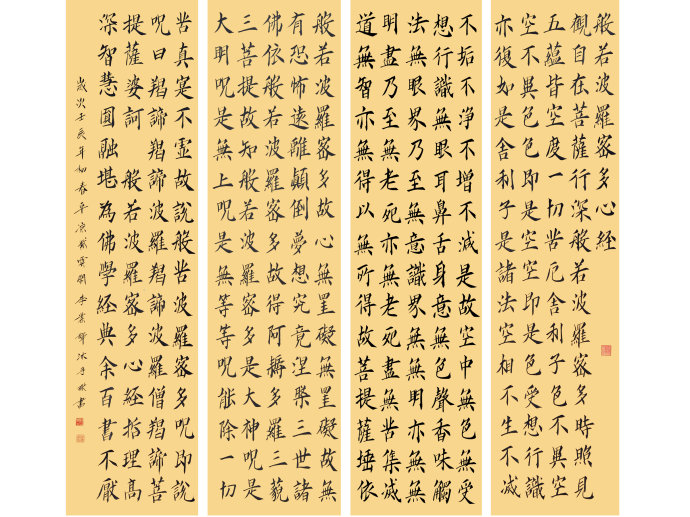 般若波羅密多心經
觀自在菩薩行深般若波羅密多時照見
五蘊皆空度一切苦厄舍利子色不異空
空不異色色即是空空即是色受想行識
亦復如是舍利子是諸法空相不生不滅
不垢不淨不增不減是故空中無色無受
想行識無眼耳鼻舌身意無色聲香味觸
法無眼界乃至無意識界無無明亦無無
明盡乃至無老死亦無老死盡無苦集滅
道無智亦無得以無所得故菩提薩埵依
般若波羅密多故心無罣礙無罣礙故無
有恐怖遠離顛倒夢想究竟涅槃三世諸
佛依般若波羅密多故得阿耨多羅三藐
三菩提故知般若波羅密多是大神呪是
大明呪是無上呪是無等等呪能除一切
苦真實不虛故說般若波羅密多呪即說
呪曰羯諦羯諦波羅羯諦波羅僧羯諦菩
提薩婆訶 般若波羅密多心經指理高
深智慧圓融堪為佛學經典余百書不厭
歲次壬辰年初春平原 沐手敬書